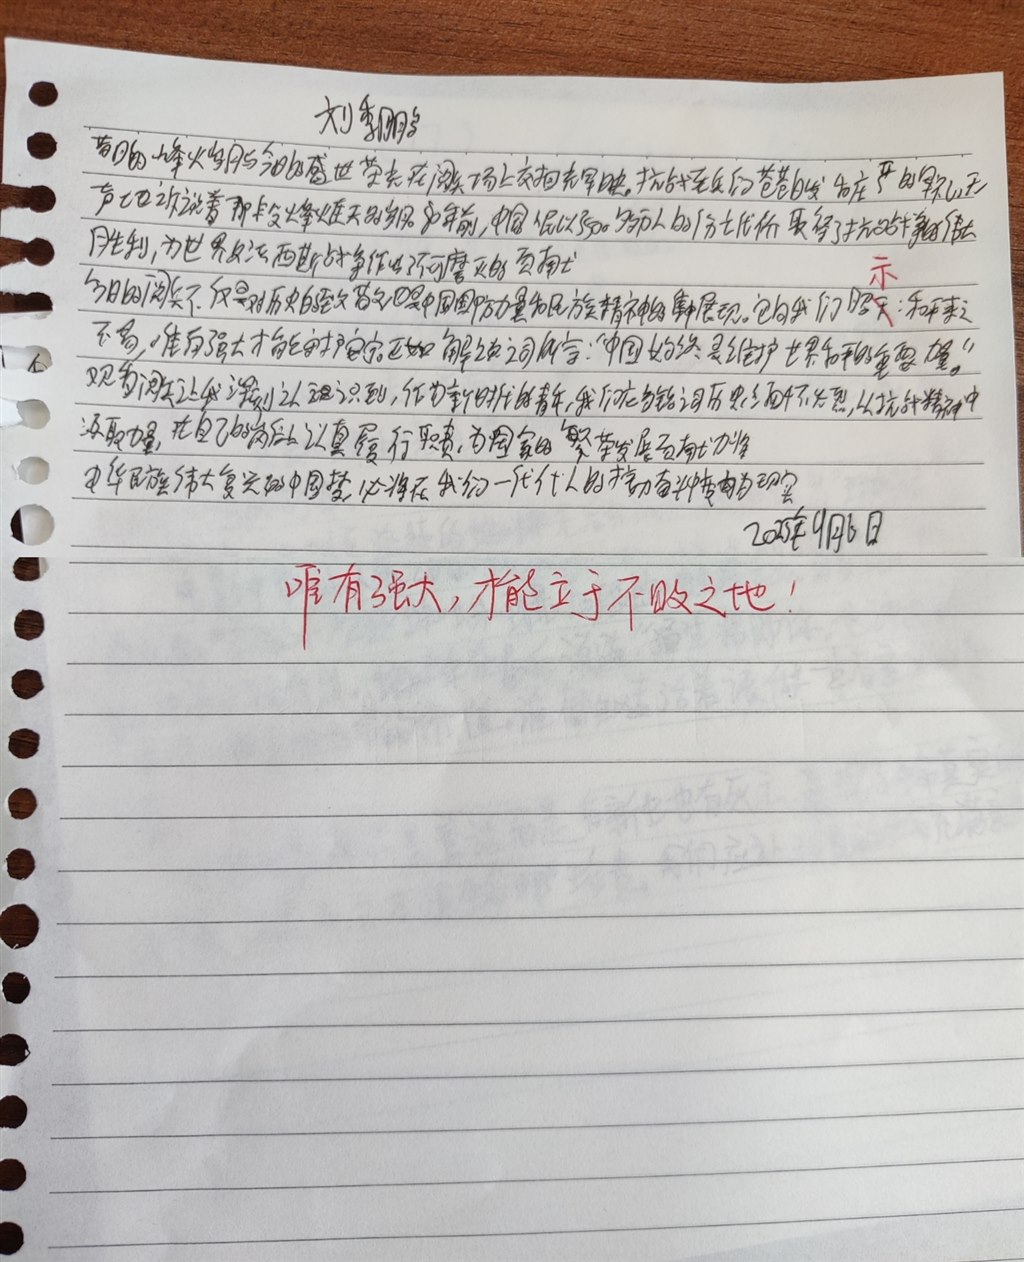 刘季鹏
昔日的烽火岁月与今日的盛世荣光在阅兵场上交相辉映。抗战老兵们苍苍白发和庄严的军礼无
声地诉说着那段烽火连天的岁月80年前,中国人民以3500多万人的伤亡代价取得了抗日战争的伟大
胜利,为世界反法西斯战争作出了不可磨灭的贡献
示
今日的阅兵不仅是对历史的致敬更是中国国防力量和民族精神的集中展现。它向我们昭:和平来之
不易,唯有强大才能守护安宁正如解说词所言:“中国始终是维护世界和平的重要力量。”
观看阅兵让我深刻认识到,作为新时代的青年,我们应当铭记历史缅怀先烈,从抗战精神中
汲取力量,在自己的岗位上认真履行职责,为国家的繁荣发展贡献力量
中华民族伟大复兴的中国梦,必将在我们一代代人的接力奋斗中变为现实
2025年9月6日
唯有强大,才能立于不败之地!